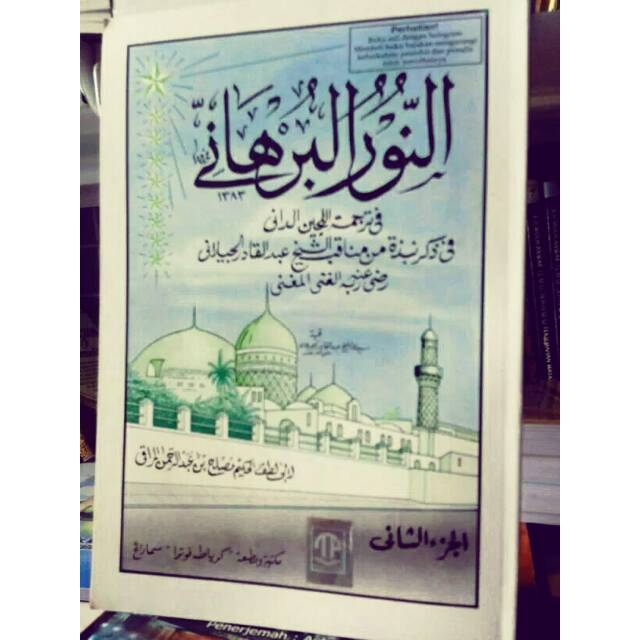 Perhatian!
Buku asli dengan hologram
النُّورُ الْبُرْهَانِيّ
١٣٨٣
فى ترجمة اللجين الدانى
فى ذكر نبذة من مناقب الشيخ عبد القادر الجيلانى
رضى عنه ربه الغنى المغنى
قبة
لابى لطف الحكيم مصلح بن عبد الرحمن المراقى
الجزء الثانى
مكتبة ومطبعة "كرياطه فوترا" سمارانج
Penerjemah :